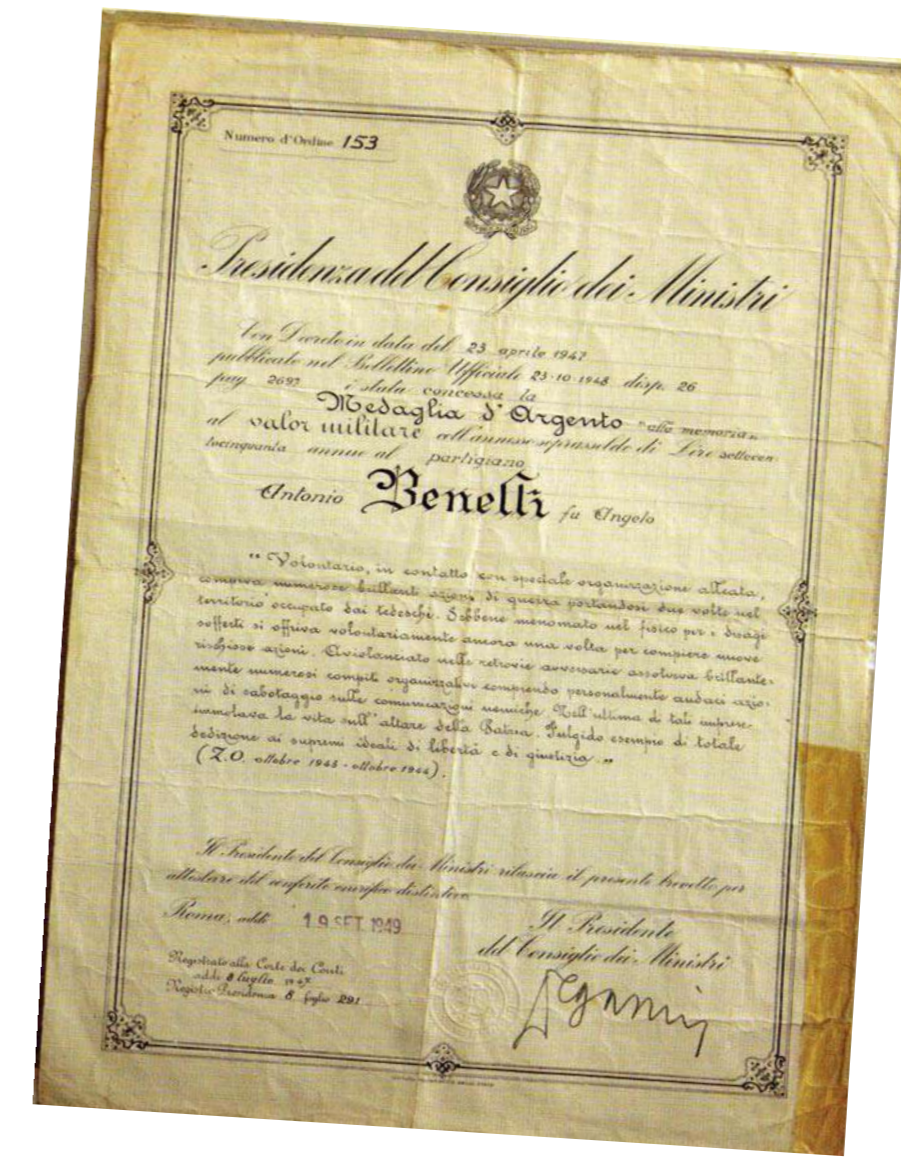 Numero d'Ordine 153
Presidenza del Consiglio dei Ministri
Con Decreto in data del 23 aprile 1947
pubblicato nel Bollettino Ufficiale 23-10-1948 disp. 26
pag. 2697 è stata concessa la
Medaglia d'Argento "alla memoria"
al valor militare coll'annesso soprassoldo di Lire settecen
tocinquanta annue al partigiano
Antonio Benelli fu Angelo
"Volontario, in contatto con speciale organizzazione alleata,
compiva numerose brillanti azioni di guerra portandosi due volte nel
territorio occupato dai tedeschi. Sebbene menomato nel fisico per i disagi
sofferti si offriva volontariamente ancora una volta per compiere nuove
rischiose azioni. Aviolanciato nelle retrovie avversarie assolveva brillante-
mente numerosi compiti organizzativi compiendo personalmente audaci azio-
ni di sabotaggio sulle comunicazioni nemiche. Nell'ultima di tali imprese
immolava la vita sull'altare della Patria. Fulgido esempio di totale
dedizione ai supremi ideali di libertà e di giustizia."
(Z.O. ottobre 1943 - ottobre 1944).
Il Presidente del Consiglio dei Ministri rilascia il presente brevetto per
attestare del conferito onorifico distintivo.
Roma, addì 19 SET. 1949
Il Presidente
del Consiglio dei Ministri
Registrato alla Corte dei Conti
addì 8 luglio 1947
Registro Presidenza 8 foglio 291